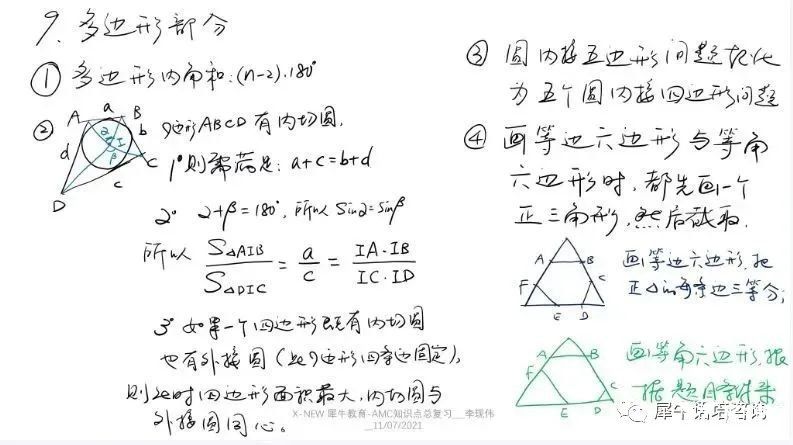 9、多边形部分
① 多边形内角和:(n-2)·180°
② 四边形ABCD有内切圆.
A a B b C c D d I α β
1°则需满足: a+c=b+d
2° α+β=180°, 所以 Sinα=Sinβ
所以 S△AIB/S△DIC = a/c = IA·IB/IC·ID
3° 如果一个四边形既有内切圆
也有外接圆(此四边形四条边固定),
则此时四边形面积最大,内切圆与
外接圆同心。
③ 圆内接五边形问题转化
为五个圆内接四边形问题
④ 画等边六边形与等角
六边形时,都先画一个
正三角形,然后截取.
A B C D E F
画等边六边形,把
正△的每条边三等分;
A B C D E F
画等角六边形,根
据题目条件来
犀牛竞培咨询
X-NEW 犀牛教育-AMC知识点总复习__李现伟
__11/07/2021